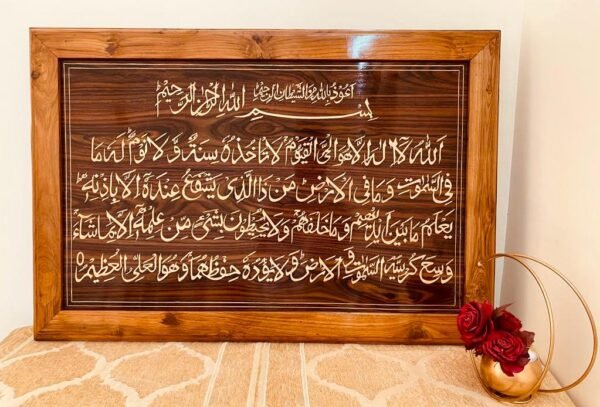 اعوذ بالله من الشيطن الرجيم
بسم الله الرحمن الرحيم
الله لا اله الا هو الحي القيوم لا تاخذه سنة و لا نوم له ما
في السموت وما في الارض من ذا الذي يشفع عنده الا باذنه
يعلم ما بين ايديهم وما خلفهم ولا يحيطون بشيء من علمه الا بما شاء
وسع كرسيه السموت و الارض ولا يؤده حفظهما وهو العلي العظيم